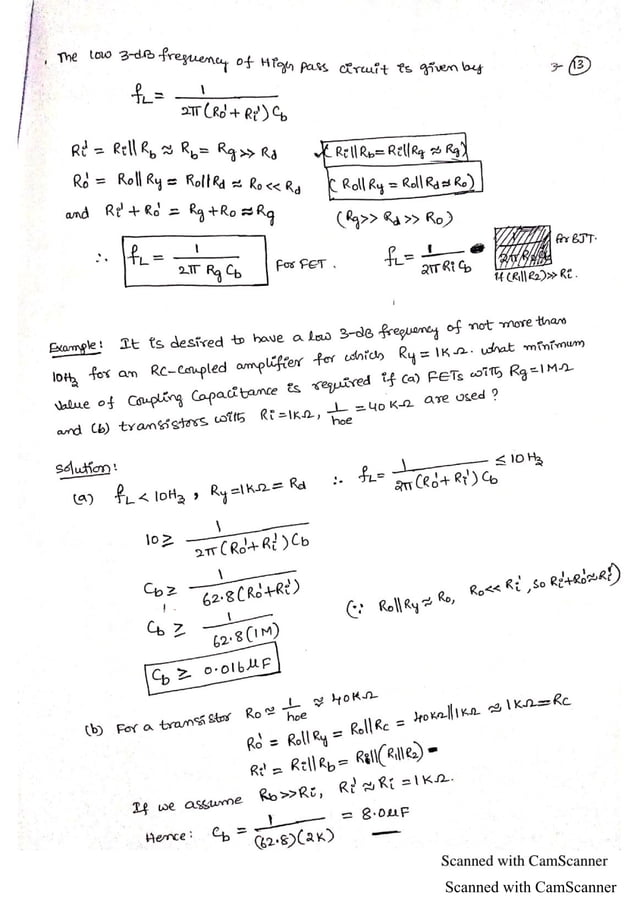 The low 3-dB frequency of High pass circuit is given by
3- 13
fL = 1 / 2π(Ro' + Ri')Cb
Ri' = Ri||Rb ≈ Rb = Rg >> Rd (Ri||Rb = Ri||Rg ≈ Rg)
Ro' = Ro||Ry = Ro||Rd ≈ Ro << Rd (Ro||Ry = Ro||Rd ≈ Ro)
and Ri' + Ro' = Rg + Ro ≈ Rg (Rg >> Rd >> Ro)
∴ fL = 1 / 2π Rg Cb For FET. fL = 1 / 2π Ri Cb for BJT.
if (R1||R2) >> Ri.
Example: It is desired to have a low 3-dB frequency of not more than
10Hz for an RC-coupled amplifier for which Ry = 1KΩ. what minimum
value of coupling capacitance is required if (a) FETs with Rg = 1MΩ
and (b) transistors with Ri = 1KΩ, 1/hoe = 40KΩ are used?
Solution:
(a) fL < 10Hz, Ry = 1KΩ = Rd ∴ fL = 1 / 2π(Ro' + Ri')Cb ≤ 10Hz
10 ≥ 1 / 2π(Ro' + Ri')Cb
Cb ≥ 1 / 62.8(Ro' + Ri')
(∵ Ro||Ry ≈ Ro, Ro << Ri', so Ri' + Ro' ≈ Ri')
Cb ≥ 1 / 62.8(1M)
Cb ≥ 0.016μF
(b) For a transistor Ro ≈ 1/hoe ≈ 40KΩ
Ro' = Ro||Ry = Ro||Rc = 40KΩ||1KΩ ≈ 1KΩ = Rc
Ri' = Ri||Rb = Ri||(R1||R2)
If we assume Rb >> Ri, Ri' ≈ Ri = 1KΩ.
Hence: Cb = 1 / (62.8)(2K) = 8.0μF
Scanned with CamScanner
Scanned with CamScanner